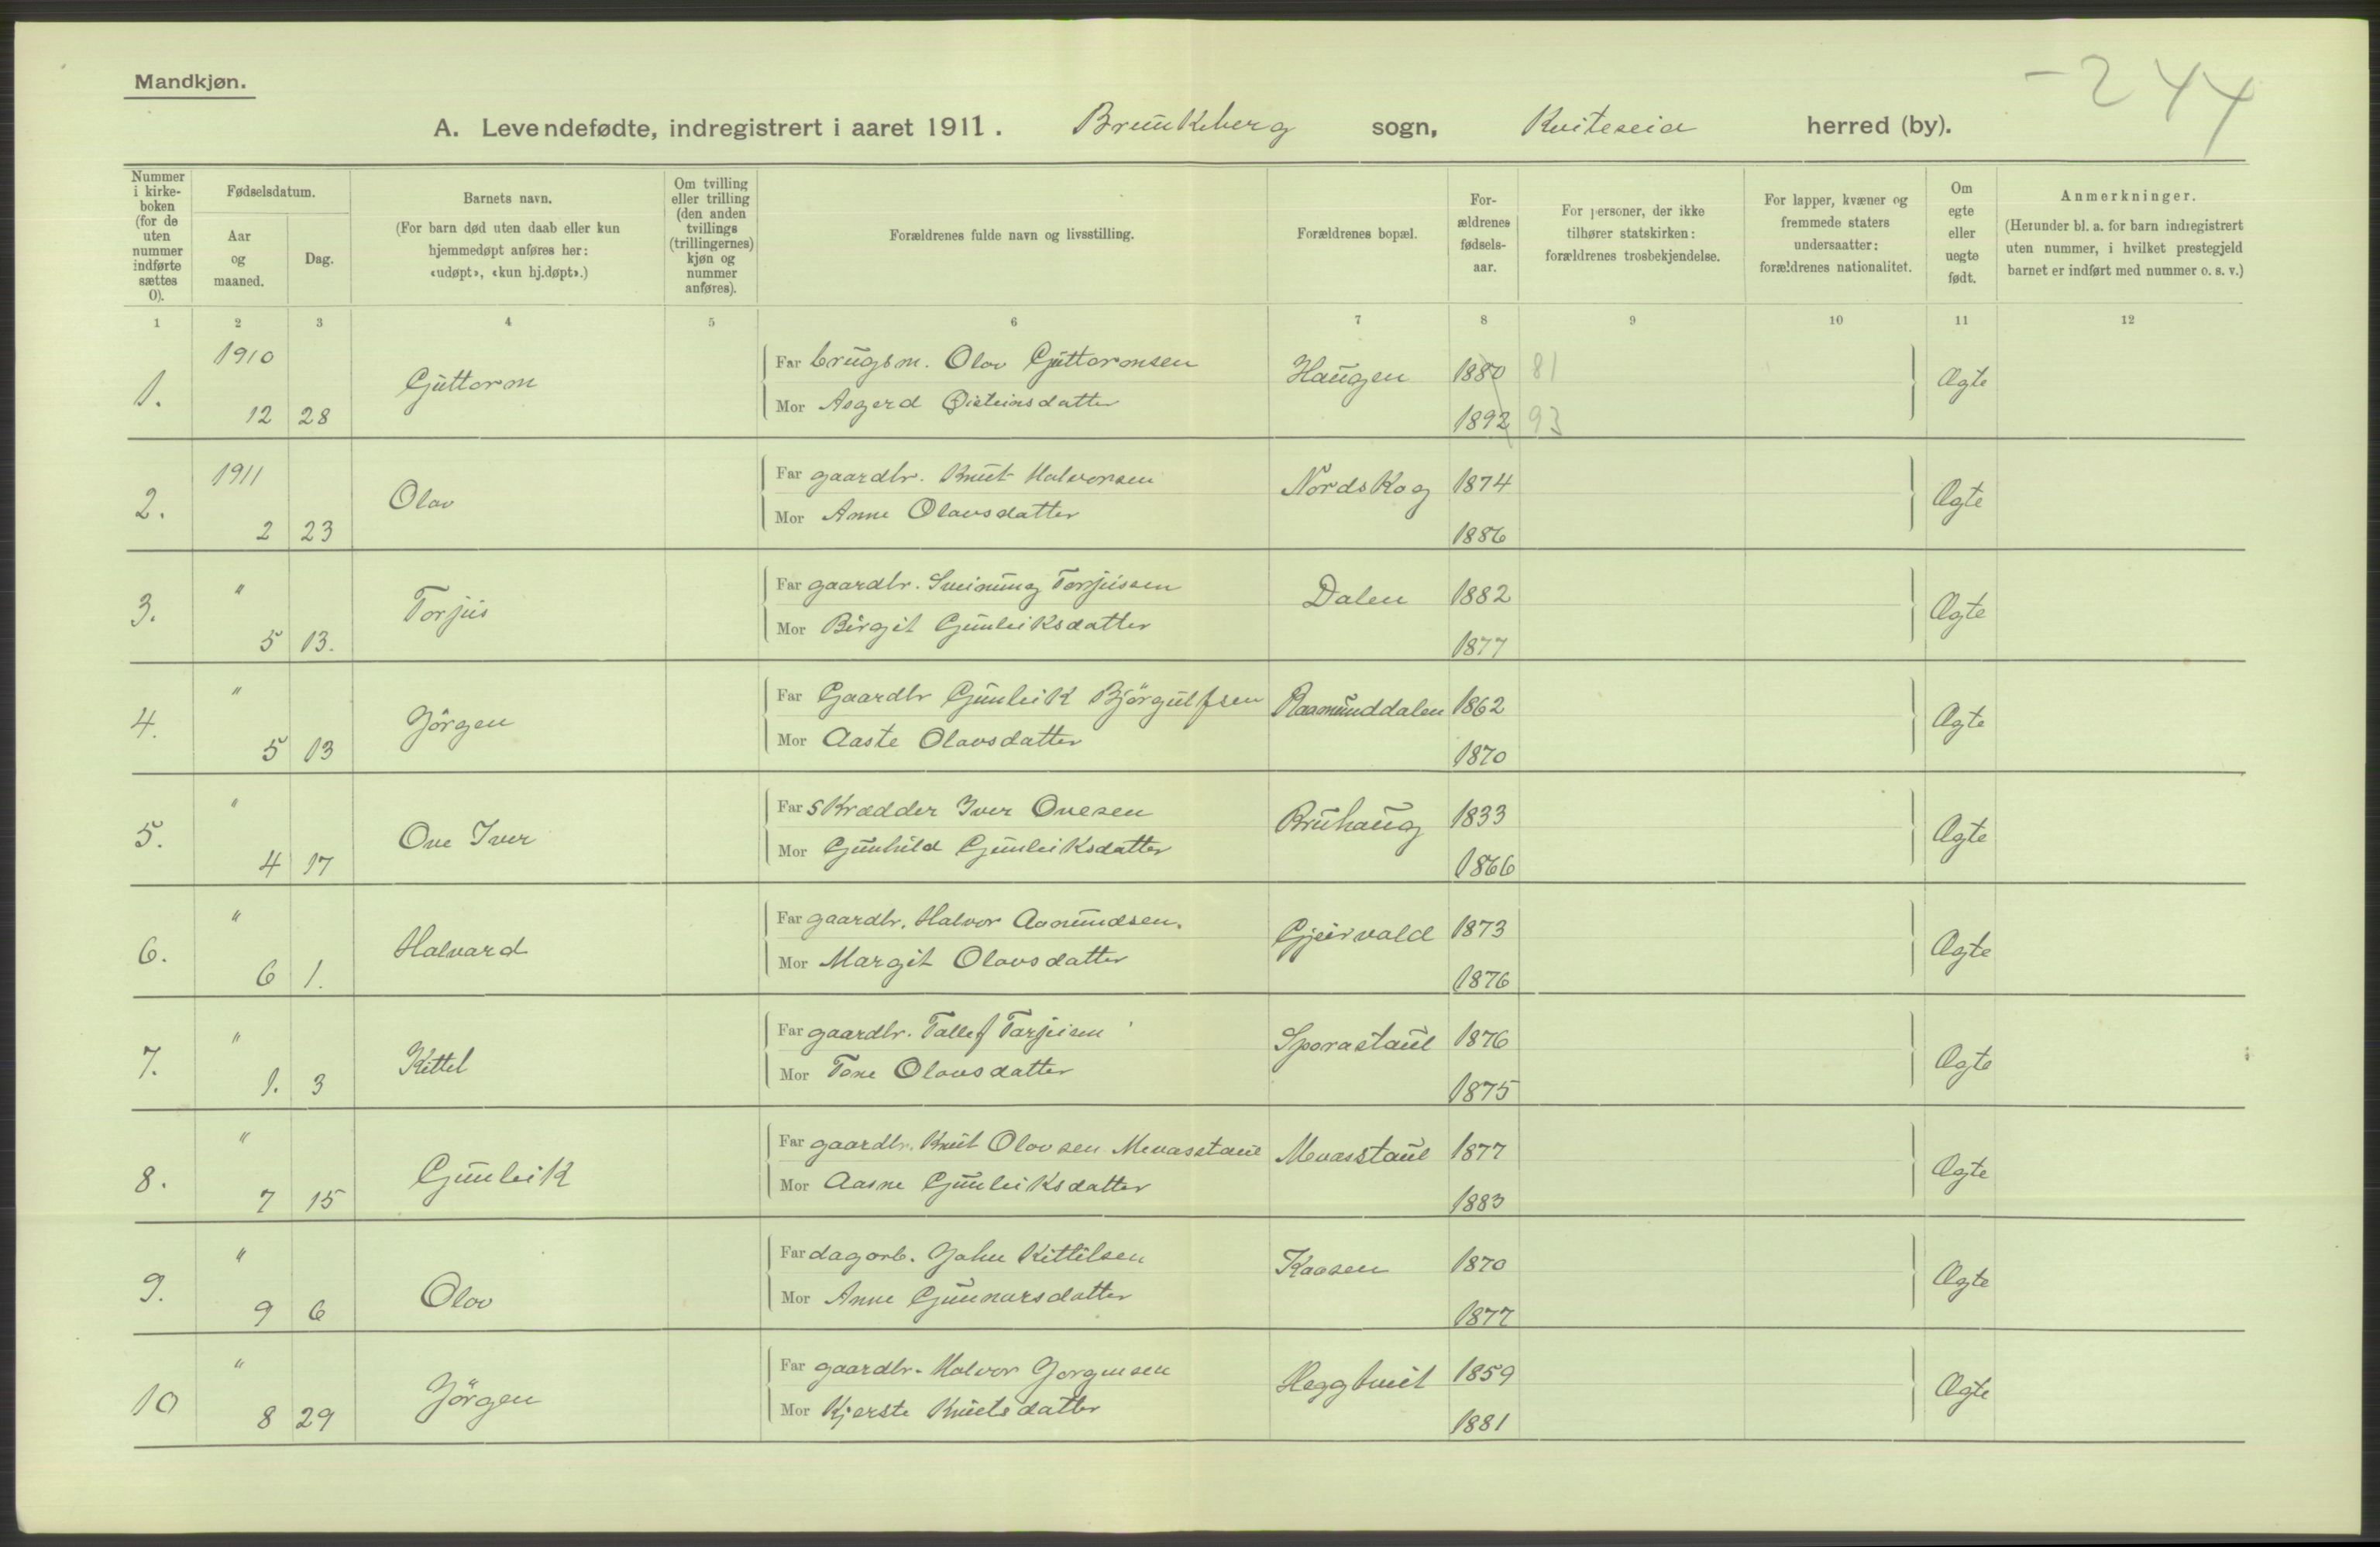 Mandkjøn.
-244
A. Levendefødte, indregistrert i aaret 1911. Brunkeberg sogn, Kviteseid herred (by).
Nummer i kirke-boken (for de uten nummer indførte sættes 0).
Fødselsdatum.
Aar og maaned.
Dag.
Barnets navn.
(For barn død uten daab eller kun hjemmedøpt anføres her: «udøpt», «kun hj.døpt».)
Om tvilling eller trilling (den anden tvillings (trillingernes) kjøn og nummer anføres).
Forældrenes fulde navn og livsstilling.
Forældrenes bopæl.
For-ældrenes fødsels-aar.
For personer, der ikke tilhører statskirken: forældrenes trosbekjendelse.
For lapper, kvæner og fremmede staters undersaatter: forældrenes nationalitet.
Om egte eller uegte født.
Anmerkninger.
(Herunder bl. a. for barn indregistrert uten nummer, i hvilket prestegjeld barnet er indført med nummer o. s. v.)
1 2 3 4 5 6 7 8 9 10 11 12
1. 1910 12 28 Guttorm Far brugsm. Olov Guttormsen Haugen 1880 81 Ægte
Mor Asgerd Øisteinsdatter 1892 93
2. 1911 2 23 Olav Far gaardbr. Knut Halvorsen Nordskog 1874 Ægte
Mor Anne Olavsdatter 1886
3. " 5 13. Torjus Far gaardbr. Sveinung Torjussen Dalen 1882 Ægte
Mor Birgit Gunleiksdatter 1877
4. " 5 13 Jörgen Far Gaardbr Gunleik Björgulfsen Raamunddalen 1862 Ægte
Mor Aaste Olavsdatter 1870
5. " 4 17 Ove Iver Far Skrædder Iver Ovesen Bruhaug 1833 Ægte
Mor Gunhild Gunleiksdatter 1866
6. " 6 1. Halvard Far gaardbr. Halvor Aamundsen. Gjeirvald 1873 Ægte
Mor Margit Olavsdatter 1876
7. " 1. 3 Kittel Far gaardbr. Tallef Tarjeisen Sporastaul 1876 Ægte
Mor Tone Olavsdatter 1875
8. " 7 15 Gunleik Far gaardbr. Knut Olavsen Mevasstaul Mevasstaul 1877 Ægte
Mor Aasne Gunleiksdatter 1883
9. " 9 6 Olov Far dagarb. John Kittilsen Kaasen 1870 Ægte
Mor Anne Gunnarsdatter 1877
10 " 8 29 Jörgen Far gaardbr. Halvor Jorgensen Heggtveit 1859 Ægte
Mor Kjerste Knutsdatter 1881